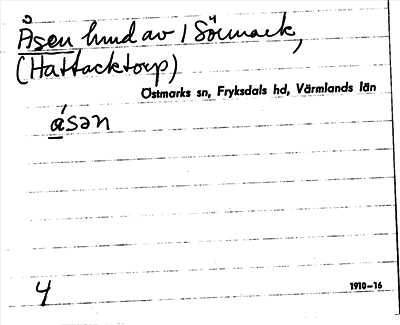 Åsen hmd av 1 Sörmark,
(Hattacktorp)
Östmarks sn, Fryksdals hd, Värmlands län
ásən
4
1910–16